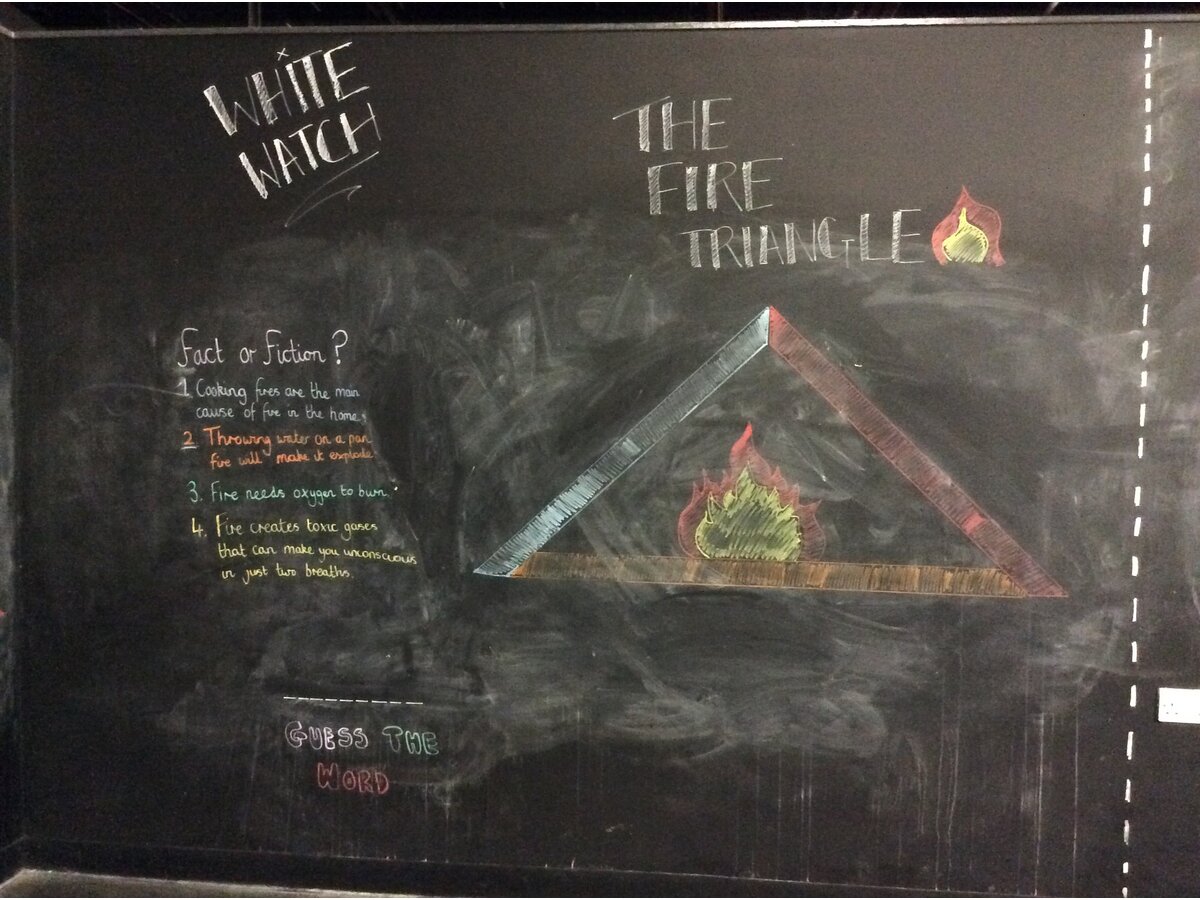 WHITE
WATCH
THE
FIRE
TRIANGLE
Fact or Fiction?
1 Cooking fires are the main
cause of fire in the home.
2 Throwing water on a pan
fire will make it explode
3. Fire needs oxygen to burn.
4. Fire creates toxic gases
that can make you unconscious
in just two breaths.
GUESS THE
WORD